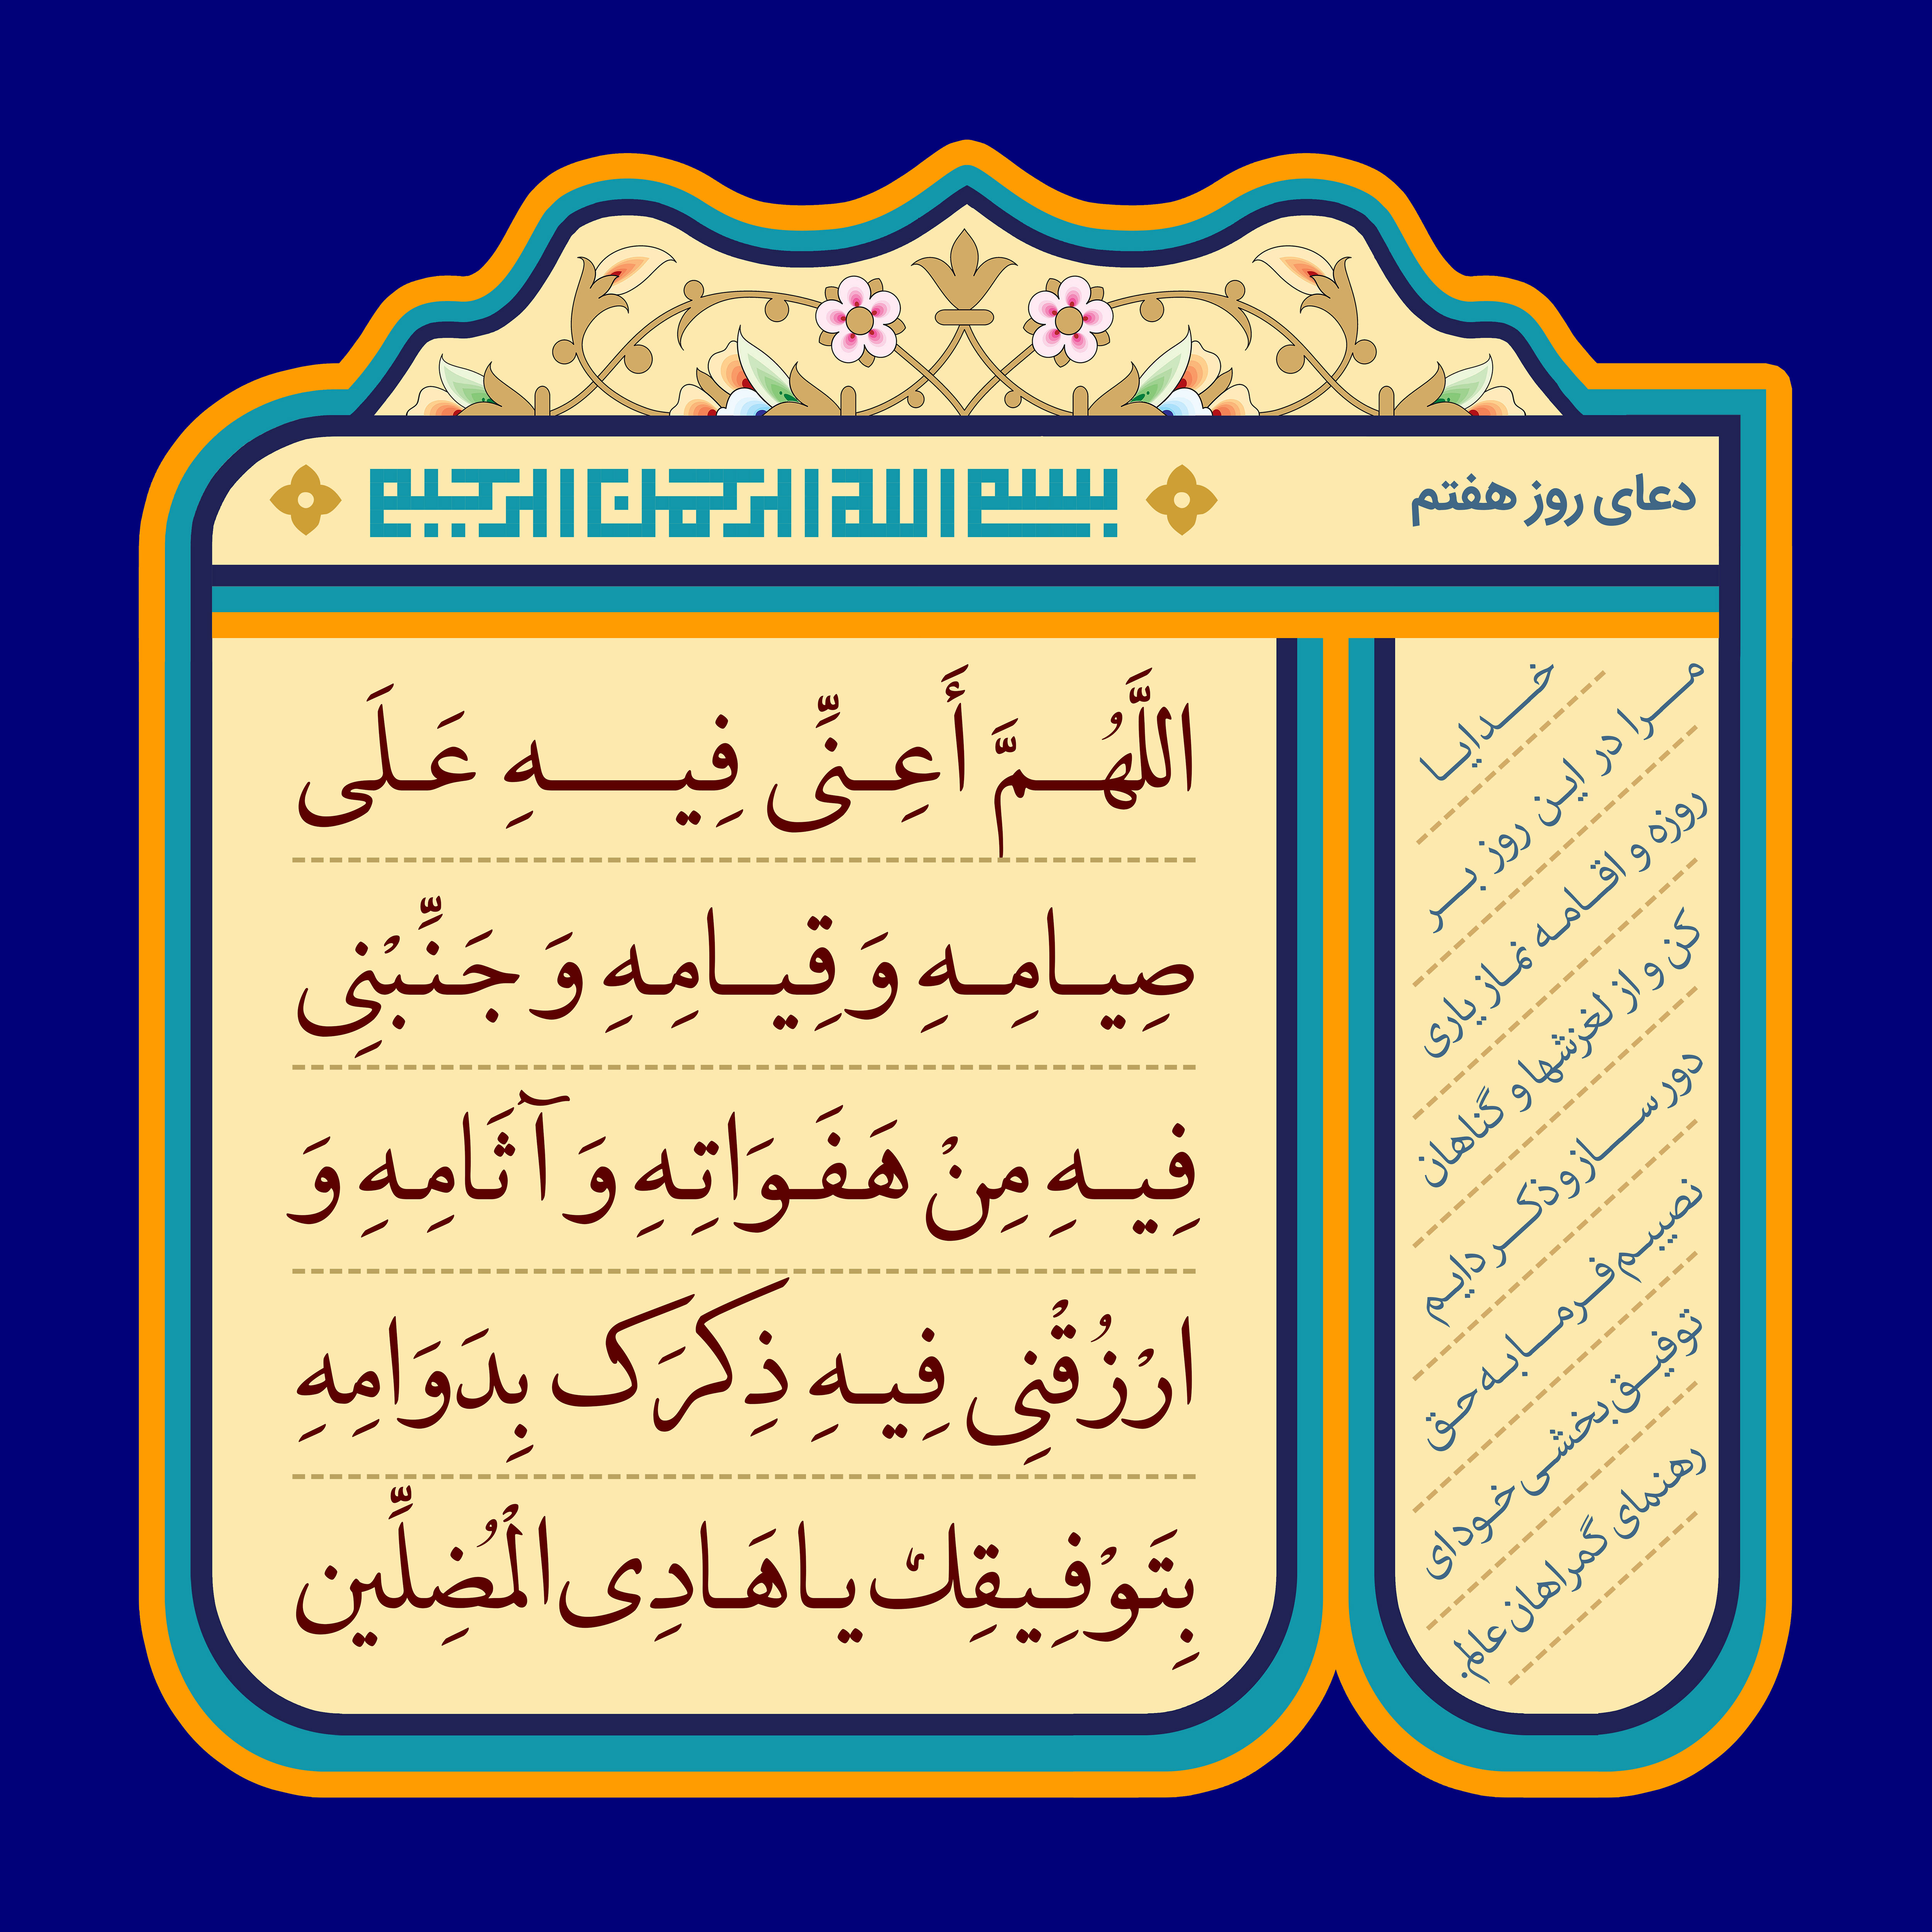 دعای روز هفتم
بسم الله الرحمن الرحیم
اللَّهُمَّ أَعِنِّی فِیهِ عَلَی
صِیامِهِ وَ قِیامِهِ وَ جَنِّبْنِی
فِیهِ مِنْ هَفَوَاتِهِ وَ آثَامِهِ وَ
ارْزُقْنِی فِیهِ ذِکْرَک بِدَوَامِهِ
بِتَوْفِیقِك یا هَادِی الْمُضِلِّین
خدایا
مرا در این روز بر
روزه و اقامه نماز یاری
کن و از لغزشها و گناهان
دور ساز و ذکر دایم
نصیبم فرما به حق
توفیق بخشی خودای
رهنمای گمراهان عالم.